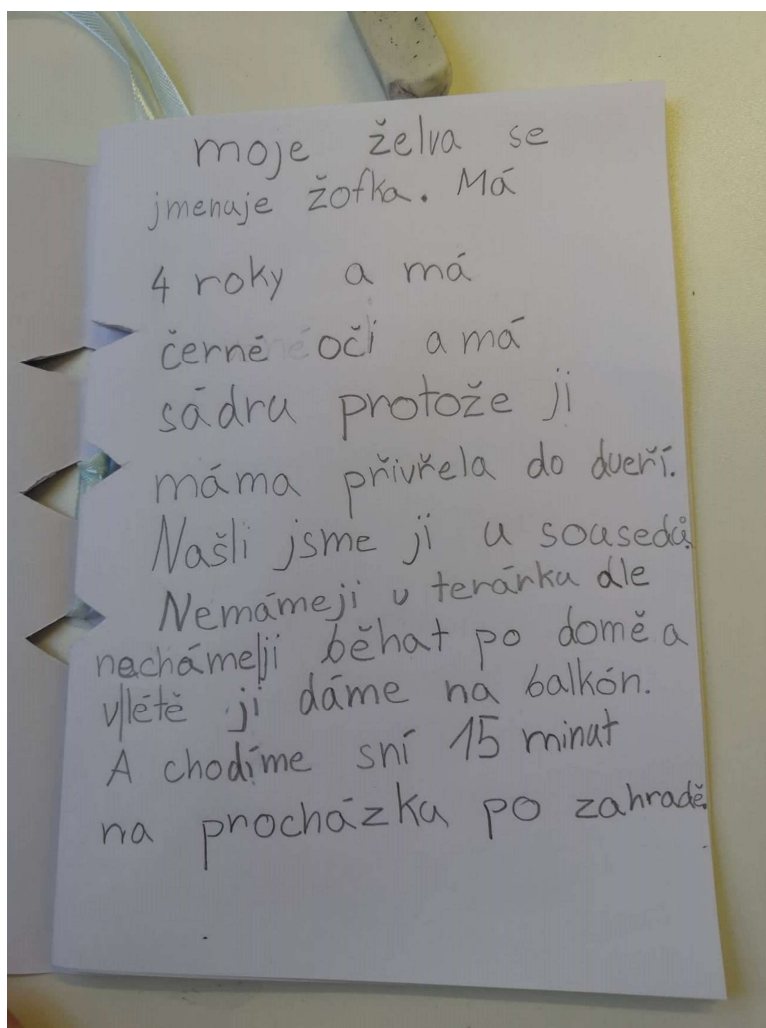 moje želva se
jmenuje žofka. Má
4 roky a má
černé oči a má
sádru protože ji
máma přivřela do dveří.
Našli jsme ji u sousedů.
Nemámeji v terárku dle
necháme|ji běhat po domě a
v|létě ji dáme na balkón.
A chodíme sní 15 minut
na procházku po zahradě.